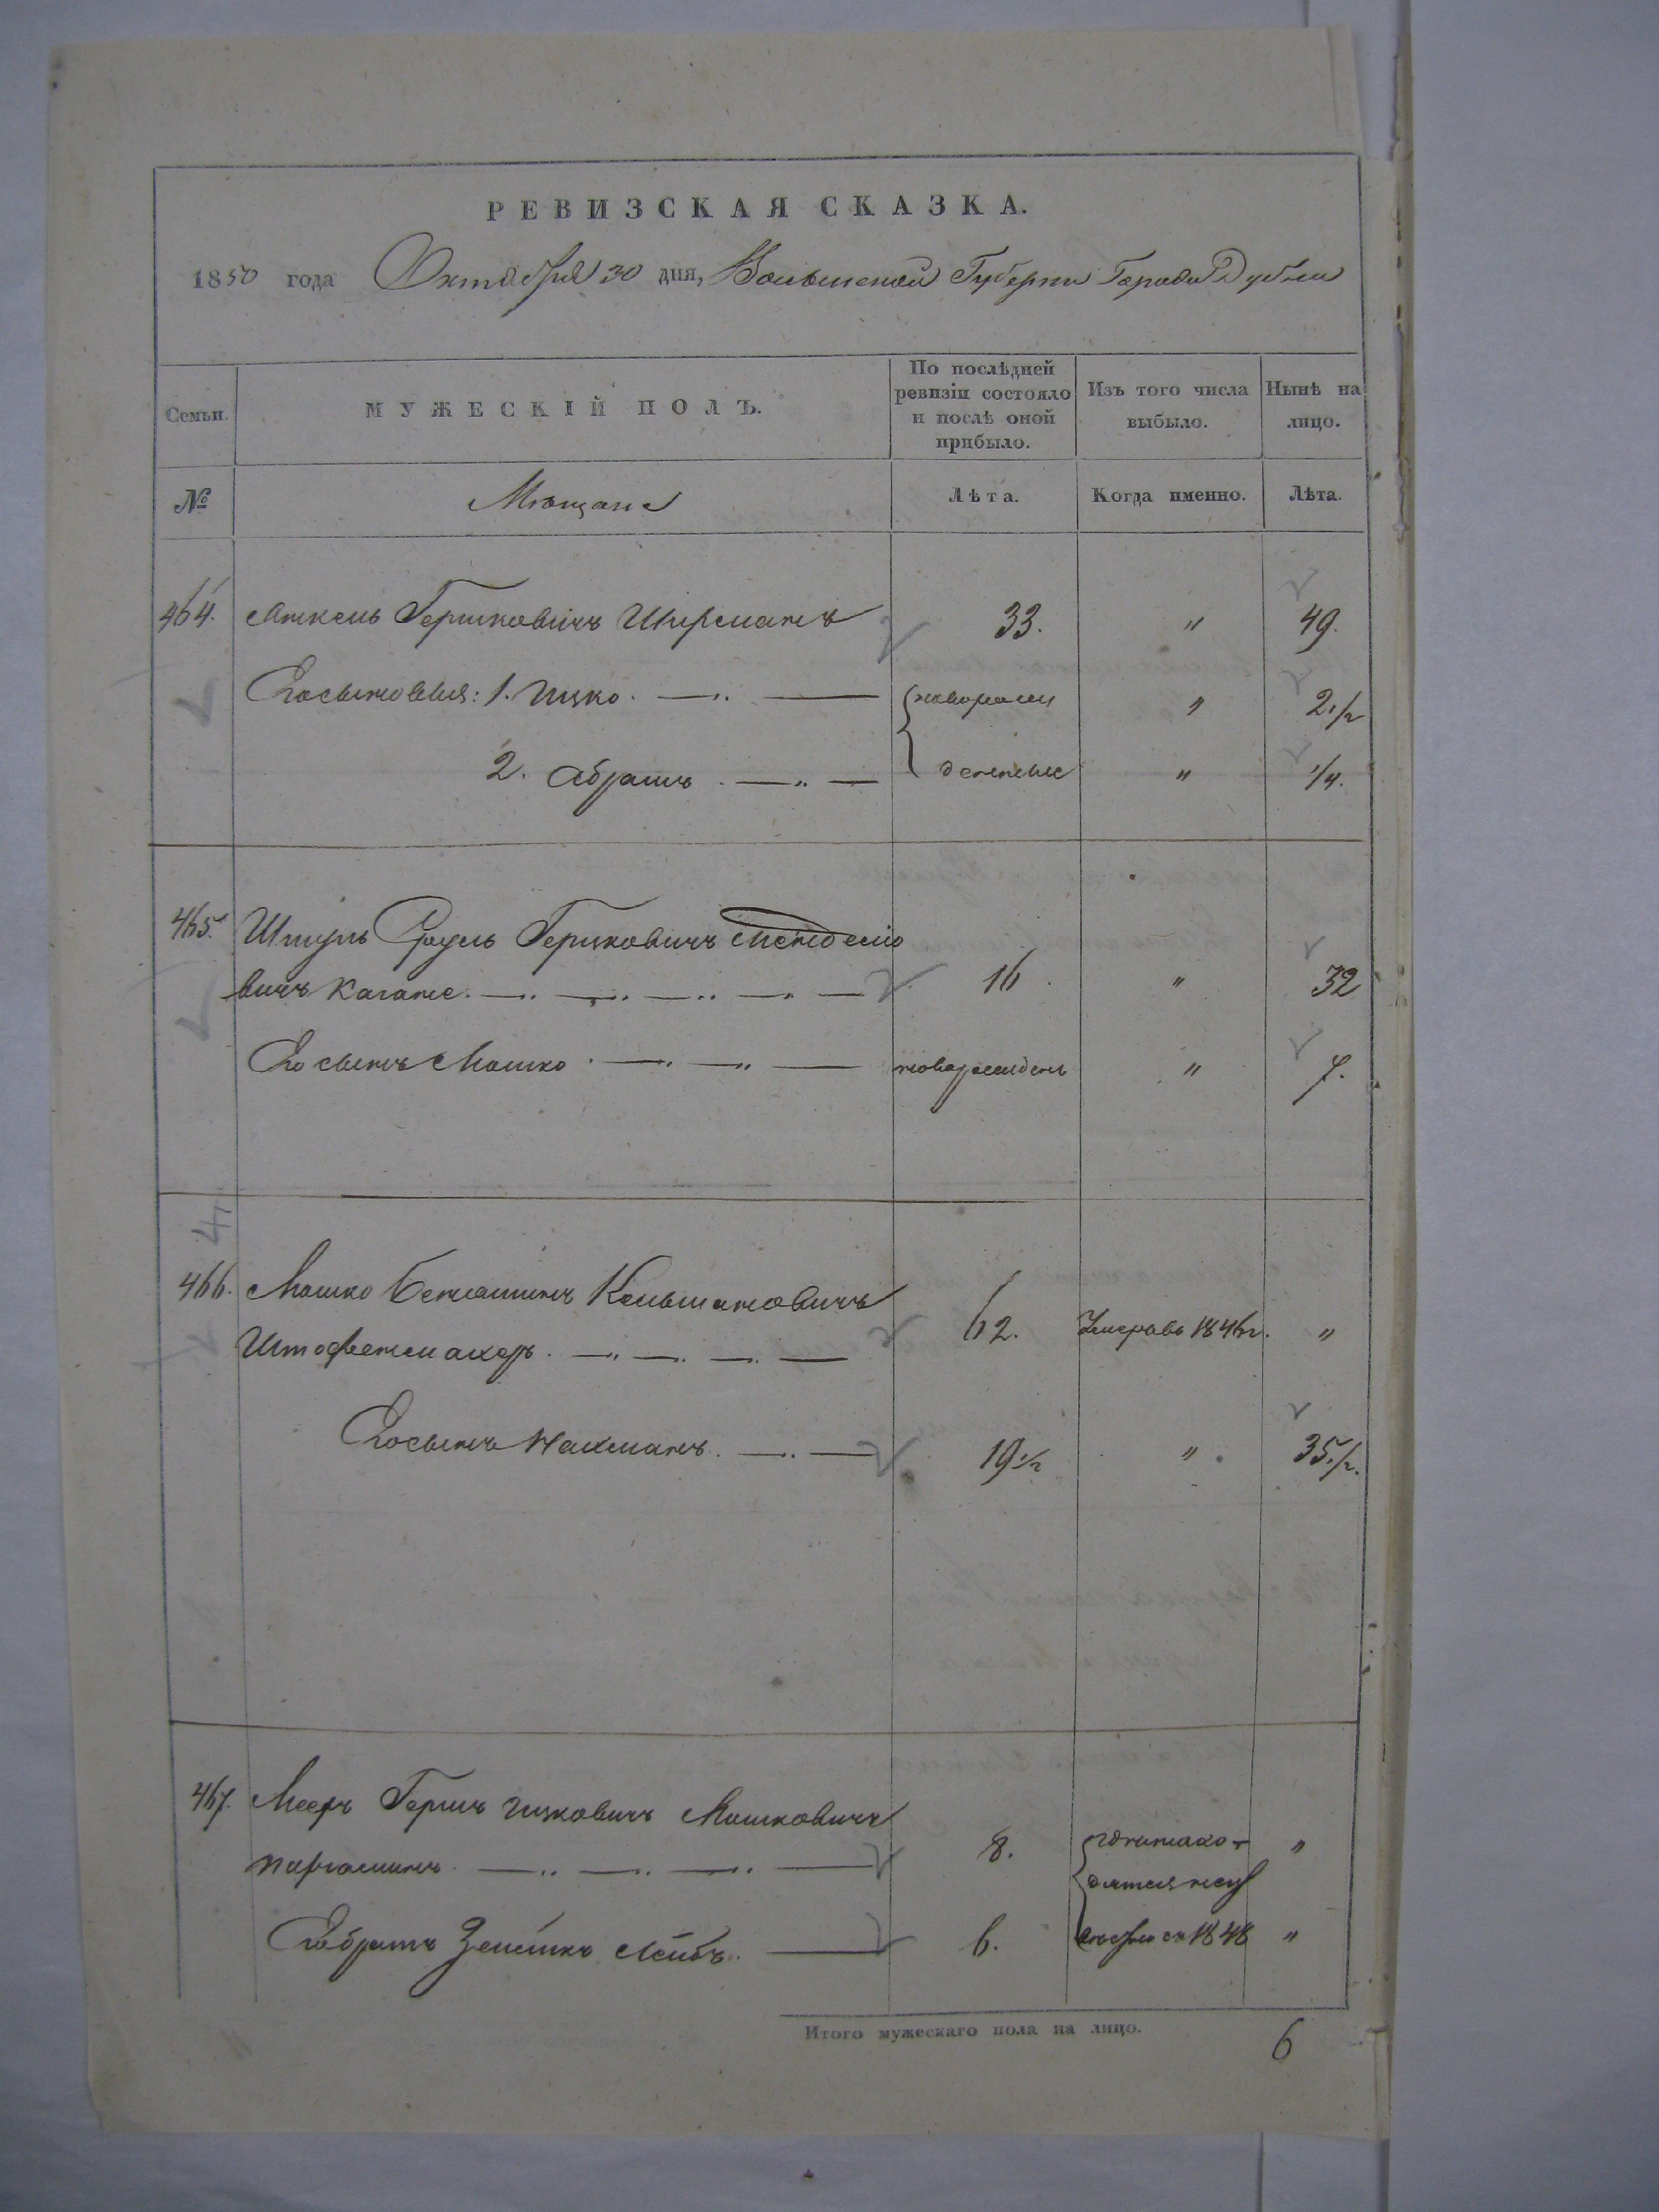 РЕВИЗСКАЯ СКАЗКА.
1850 года Октября 30 дня, Волынской Губернии Города Дубна
Семьи. МУЖЕСКІЙ ПОЛЪ. По послѣдней ревизіи состояло и послѣ оной прибыло. Изъ того числа выбыло. Нынѣ на лицо.
№ Мѣщане Лѣта. Когда именно. Лѣта.
464. Анкель Гершковичъ 33. " 49.
Его сыновья: 1. Ицко новорож " 2 1/2
2. Абрамъ денные " 1/4.
465. Шмуль Гершковичъ Менделіо
вичъ Кагане 16. " 32
Его сынъ Мошко новорожденъ " 7.
466. Мошко Беніоминъ Кельмановичъ
Штофенмахеръ 62. Умеръ въ 1846 г. "
Его сынъ Нахманъ 19 1/2 " 35 1/2.
467. Мееръ Гершъ Ицковичъ Мошковичъ
8. "
Его братъ Зелікъ Лейбъ 6. 1848 "
Итого мужескаго пола на лицо. 6